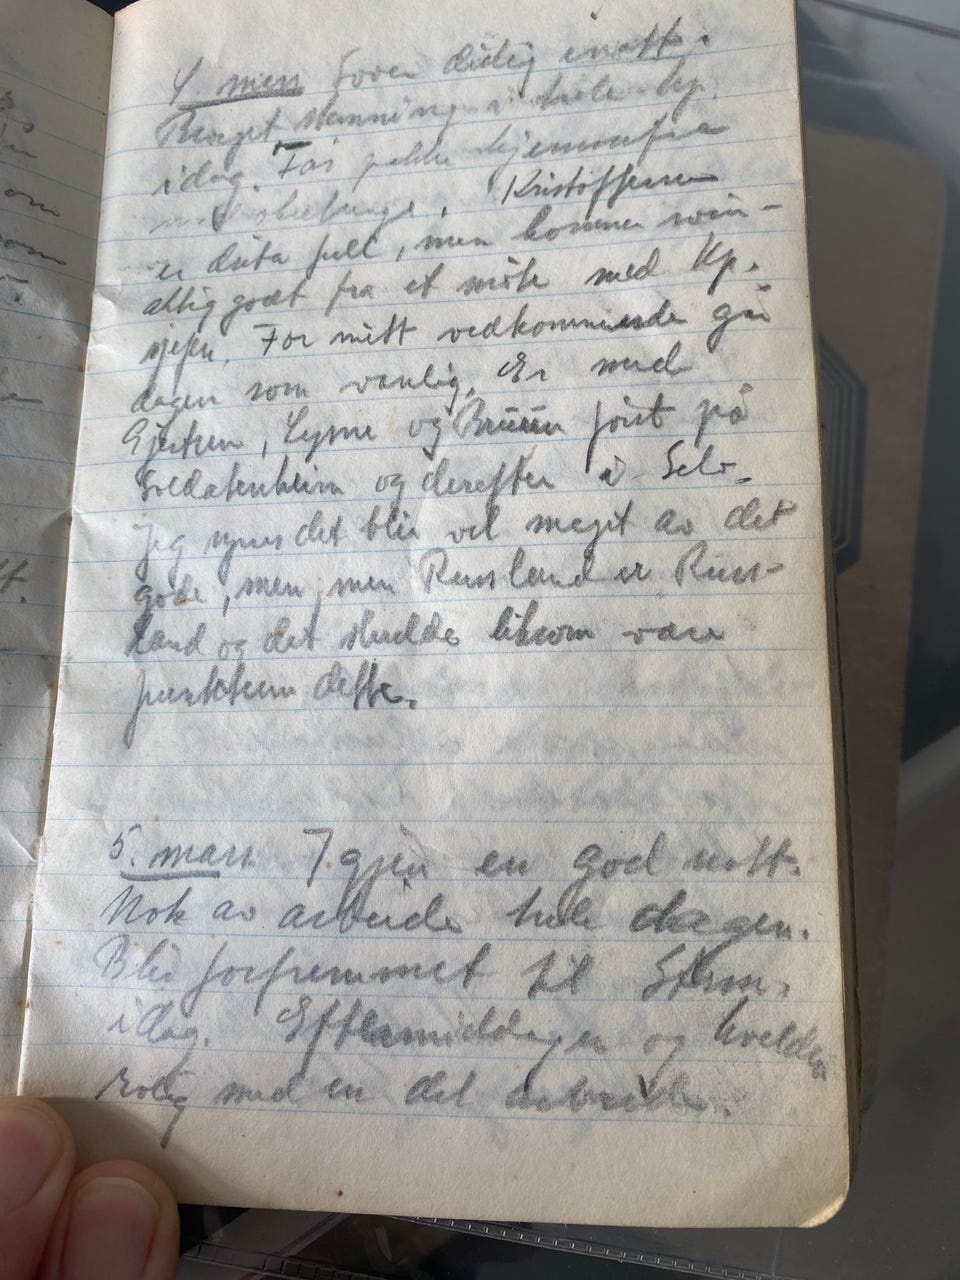 4. mars Sover deilig inatt.
Berget stemning i hele kp.
idag. Får pakke hjemmefra
er døta full, men kommer vein-
aktig godt fra et møte med Kp.
sjefen. For mitt vedkommende går
dagen som vanlig. Er med
Gjertsen, Lysne og Bruun først på
Soldatenheim og derefter i Selv.
Jeg synes det blir vel meget av det
gode, men, men Russland er Russ-
land og det skulde liksom være
punktum dette.
5. mars Igjen en god natt.
Nok av arbeide hele dagen.
Blir forfremmet til Strm.
idag. Eftermiddagen og kvelden
rolig med en del arbeide.